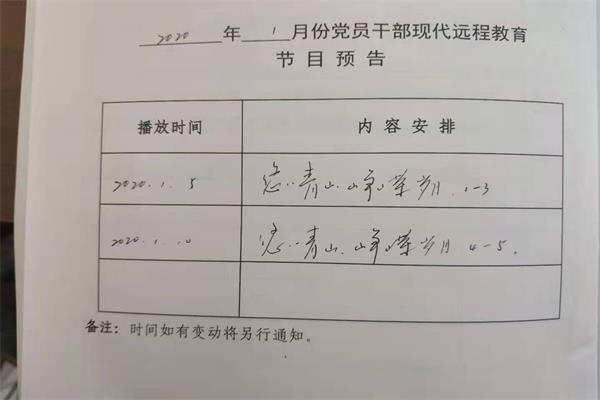 2020 年 1 月份党员干部现代远程教育
节目预告
播放时间 内容安排
2020.1.5 青山 峥嵘岁月 1-3
2020.1.10 青山 峥嵘岁月 4-5.
备注：时间如有变动将另行通知。